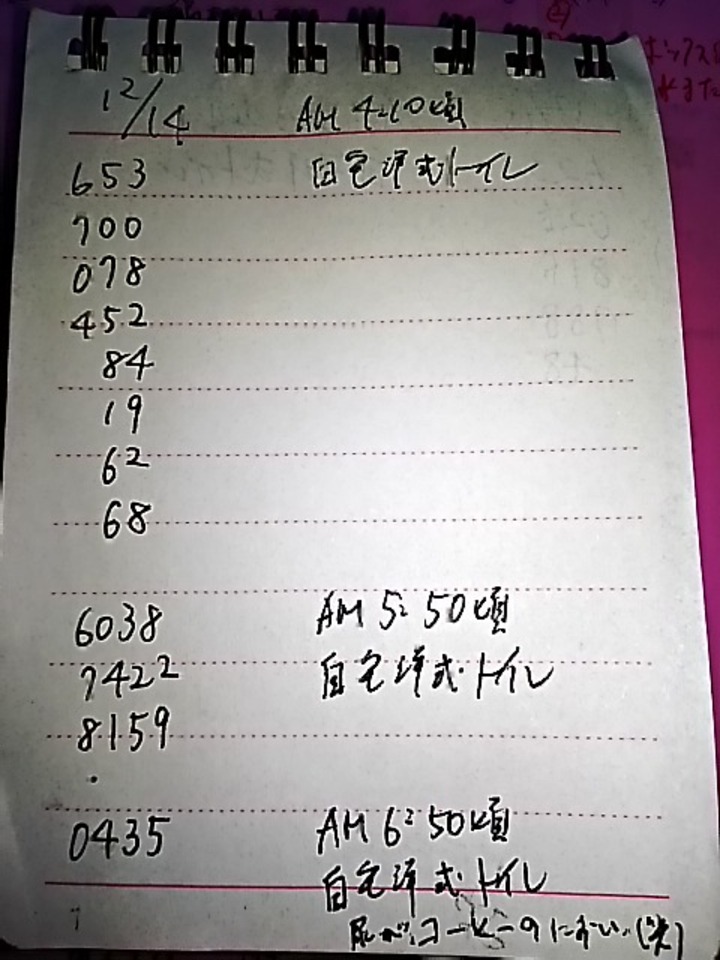 12/14 AM 4:10頃
653 自宅洋式トイレ
700
078
452
84
19
62
68
6038 AM 5:50頃
7422 自宅洋式トイレ
8159
・
0435 AM 6:50頃
自宅洋式トイレ
尿が、コーヒーのにおい(笑)